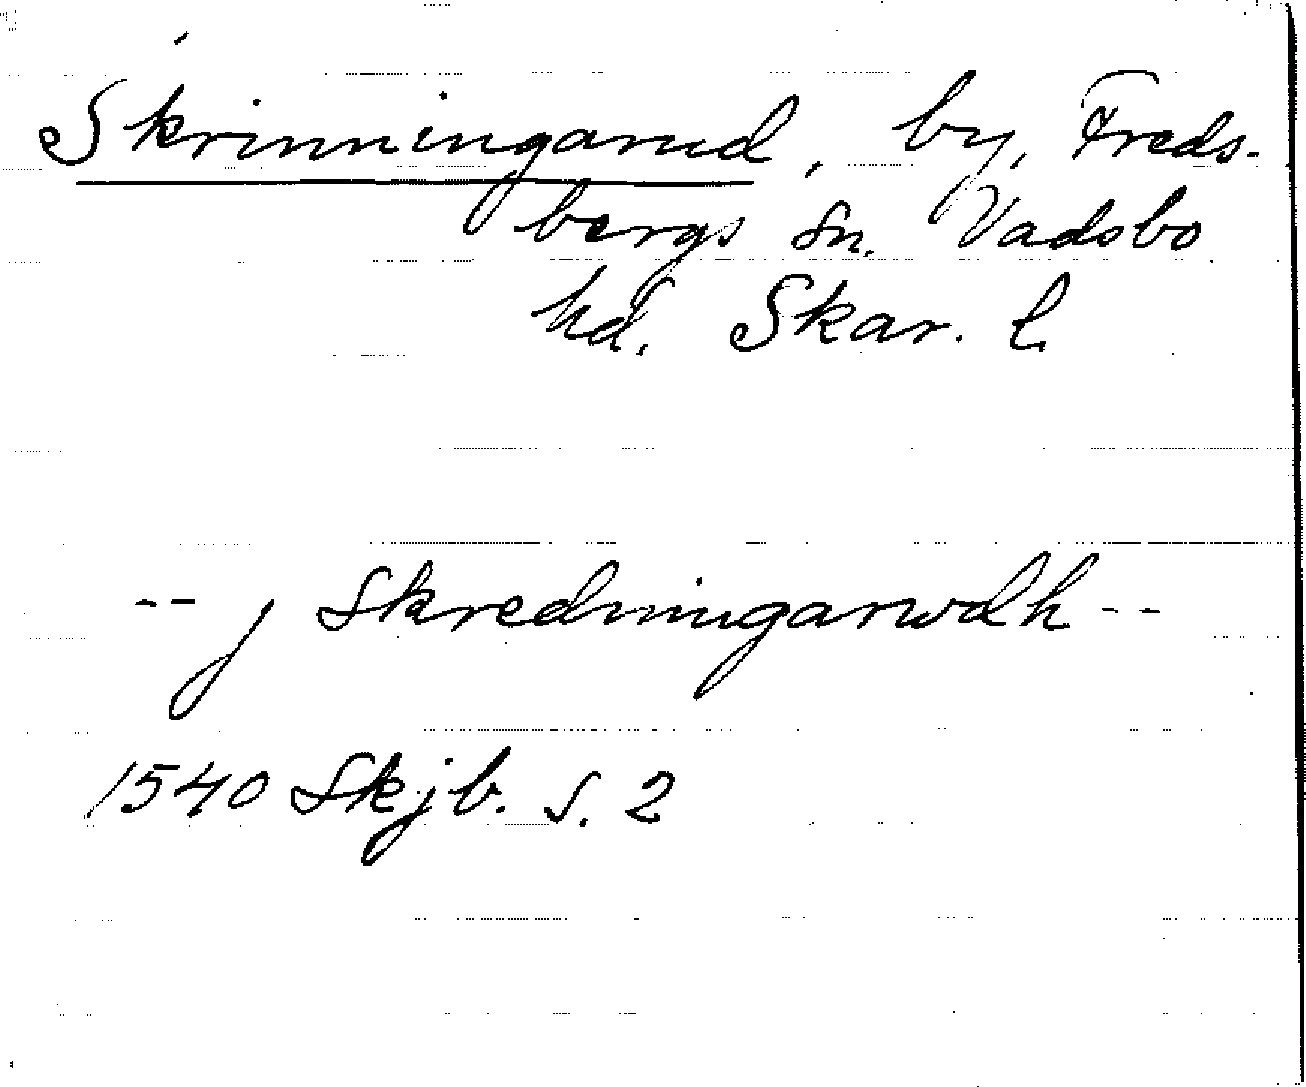 Skrinningarud, by, Freds-
bergs sn. Vadsbo
hd. Skar. l
-- j Skredningarwdh --
1540 Skjb. s. 2